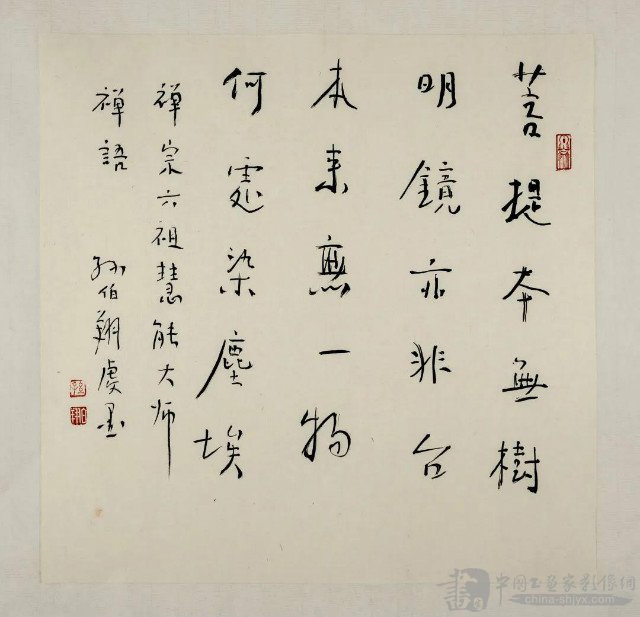 菩提本無樹
明鏡亦非台
本来無一物
何處染塵埃
禪宗六祖慧能大师
禅語
孙伯翔虔墨
中国书画家影像网
china-shjyx.com